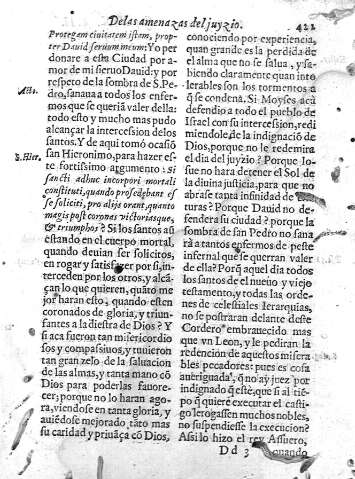 De las amenazas del juyzio. 421
Protegam ciuitatem istam, propter
ter Dauid seruum meum: Yo per
donare a esta Ciudad por a-
mor de mi sieruo Dauid: y por
respeto de la sombra de S. Pe-
Acto.
dro, sanaua a todos los enfer-
mos que se queriã valer della:
todo esto y mucho mas pudo
alcançar la intercession delos
santos. Y de aqui tomò ocasiõ
D. Hier.
san Hieronimo, para hazer es-
te fortissimo argumento: Si
sancti adhuc in corpori mortali
constituti, quando pro se debent es
se soliciti, pro alijs orant, quanto
magis post coronas victorias que,
& triumphos? Si los santos aũ
estando en el cuerpo mortal,
quando deuian ser solicitos,
en rogar y satisfazer por si, in-
terceden por los otros, y alcã-
çan lo que quieren, quãto me
jor haran esto, quando esten
coronados de gloria, y triun-
fantes a la diestra de Dios? Y
si aca fueron tan misericordio
sos y compassiuos, y tuuieron
tan gran zelo de la saluacion
de las almas, y tanta mano cõ
Dios para poderlas fauore-
cer; porque no lo haran ago-
ra, viendose en tanta gloria, y
auiẽdose mejorado tãto mas
su caridad y priuãça cõ Dios,
conociendo por experiencia,
quan grande es la perdida de
el alma que no se salua, y sa-
biendo claramente quan into
lerables son los tormentos a
q̃ se condena. Si Moyses acà
defendio a todo el pueblo de
Israel con su intercession, redi
miendole, de la indignaciõ de
Dios, porque no le redimira
el dia del juyzio? Porque Io-
sue no hara detener el Sol de
la diuina justicia, para que no
abrase tanta infinidad de cria
turas? Porque Dauid no de-
fendera su ciudad? porque la
sombra de san Pedro no sana
rà a tantos enfermos de peste
infernal que se querran valer
de ella? Porq̃ aquel dia todos
los santos del nueuo y viejo
testamento, y todas las orde-
nes de celestiales Ierarquias,
no se postraran delante deste
Cordero embrauecido mas
que vn Leon, y le pediran la
redencion de aquestos misera
bles pecadores: pues es cosa
aueriguada, q̃ no ay juez por
indignado q̃ estè, que si al tiẽ-
po q̃ quiere executar el casti-
go le rogassen muchos nobles,
no suspendiesse la execucion?
Assi lo hizo el rey Assuero,
Dd 3 quando